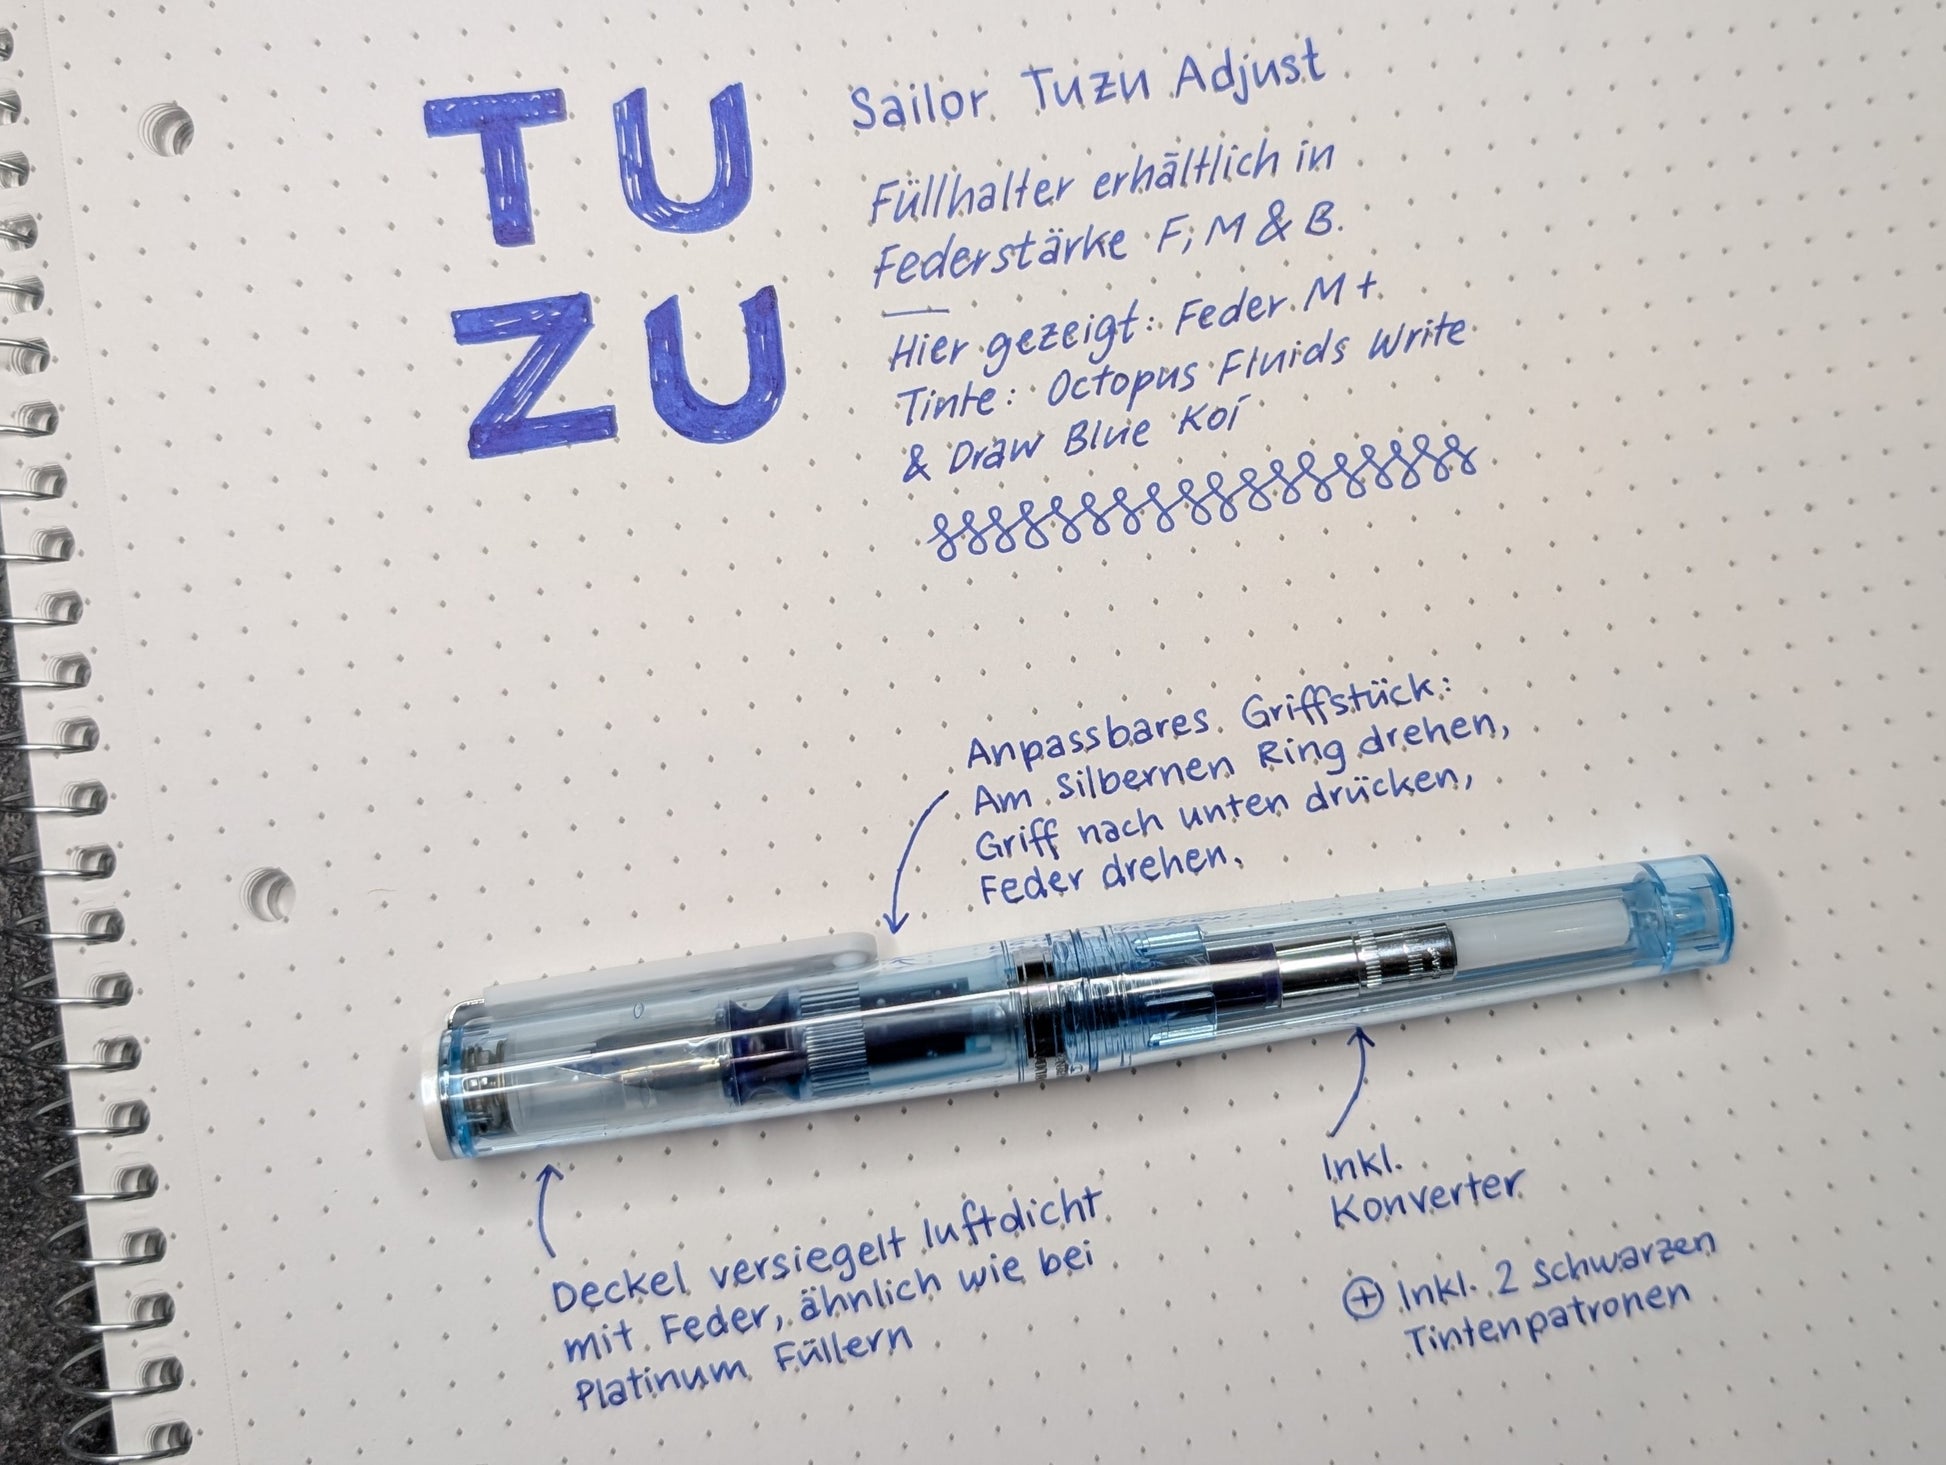 TU
ZU
Sailor Tuzu Adjust
Füllhalter erhältlich in
Federstärke F, M & B.
Hier gezeigt: Feder M +
Tinte: Octopus Fluids Write
& Draw Blue Koi
Anpassbares Griffstück:
Am silbernen Ring drehen,
Griff nach unten drücken,
Feder drehen.
Inkl.
Konverter
Deckel versiegelt luftdicht
mit Feder, ähnlich wie bei
Platinum Füllern
⊕ Inkl. 2 schwarzen
Tintenpatronen